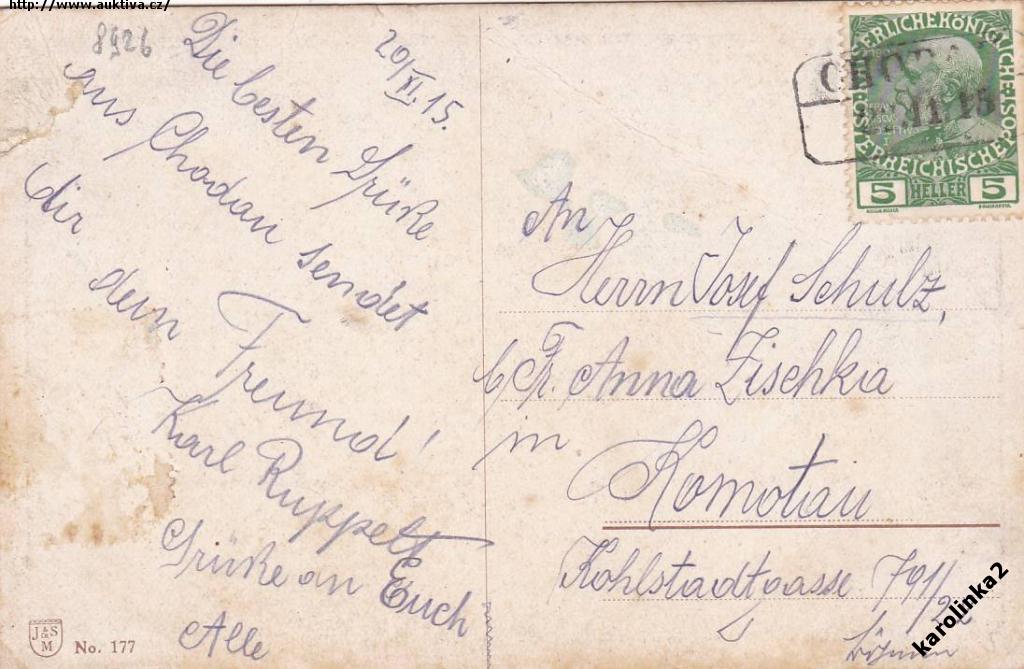 http://www.auktiva.cz/
8926
20/XI.15.
Die besten Grüße
aus Chodau sendet
dir
dein
Freund!
Karl Ruppelt
Grüße an Euch
Alle
An
Herrn Josef Schulz,
b/ Fr. Anna Zischka
in
Komotau
Kohlstadtgasse 791/22
Böhmen
5 HELLER 5
11.15
J & S
M
No. 177
karolinka2